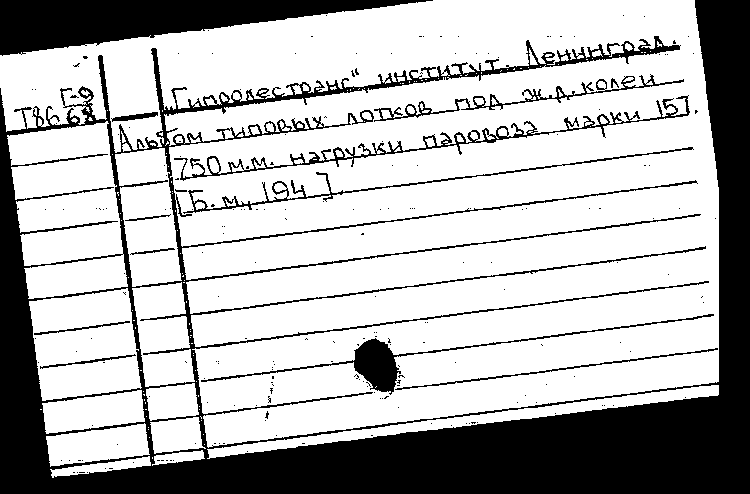 Г-9
Т86 68
„Гипролестранс“, институт. Ленинград.
Альбом типовых лотков под ж.д. колеи
750 м.м. нагрузки паровоза марки 157.
[Б. м., 194 ].